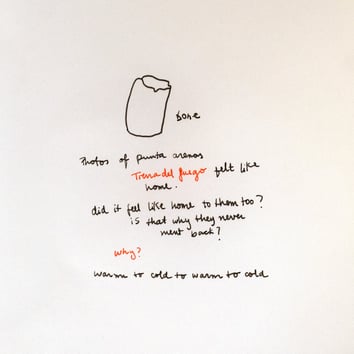 bone
Photos of punta arenas
Tierra del fuego felt like
home.
did it feel like home to them too?
is that why they never
went back?
why?
warm to cold to warm to cold